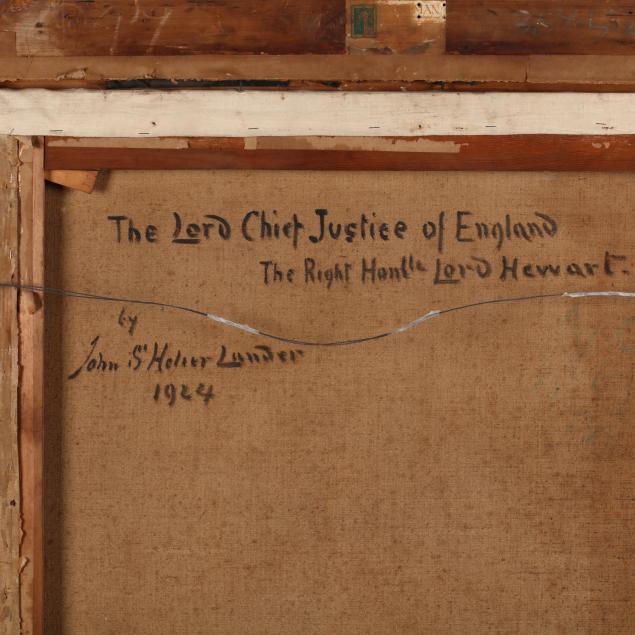 JAN.
The Lord Chief Justice of England
The Right Honble Lord Hewart.
by
John St Helier Lander
1924